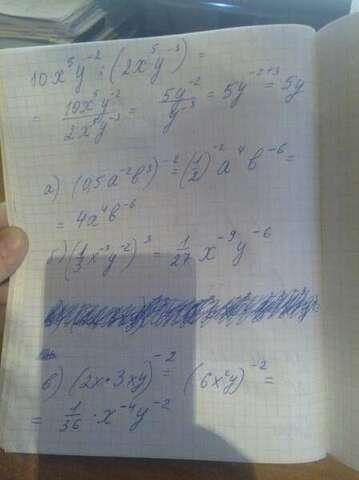 10x⁵y⁻² : (2x⁵y⁻³) =
= 10x⁵y⁻² / 2x⁵y⁻³ = 5y⁻² / y⁻³ = 5y⁻²⁺³ = 5y
а) (0,5a⁻²b³)⁻² = (1/2)⁻² a⁴ b⁻⁶ =
= 4a⁴b⁻⁶
б) (1/3 x⁻³y⁻²)³ = 1/27 x⁻⁹ y⁻⁶
в) (2x · 3xy)⁻² = (6x²y)⁻² =
= 1/36 · x⁻⁴y⁻²